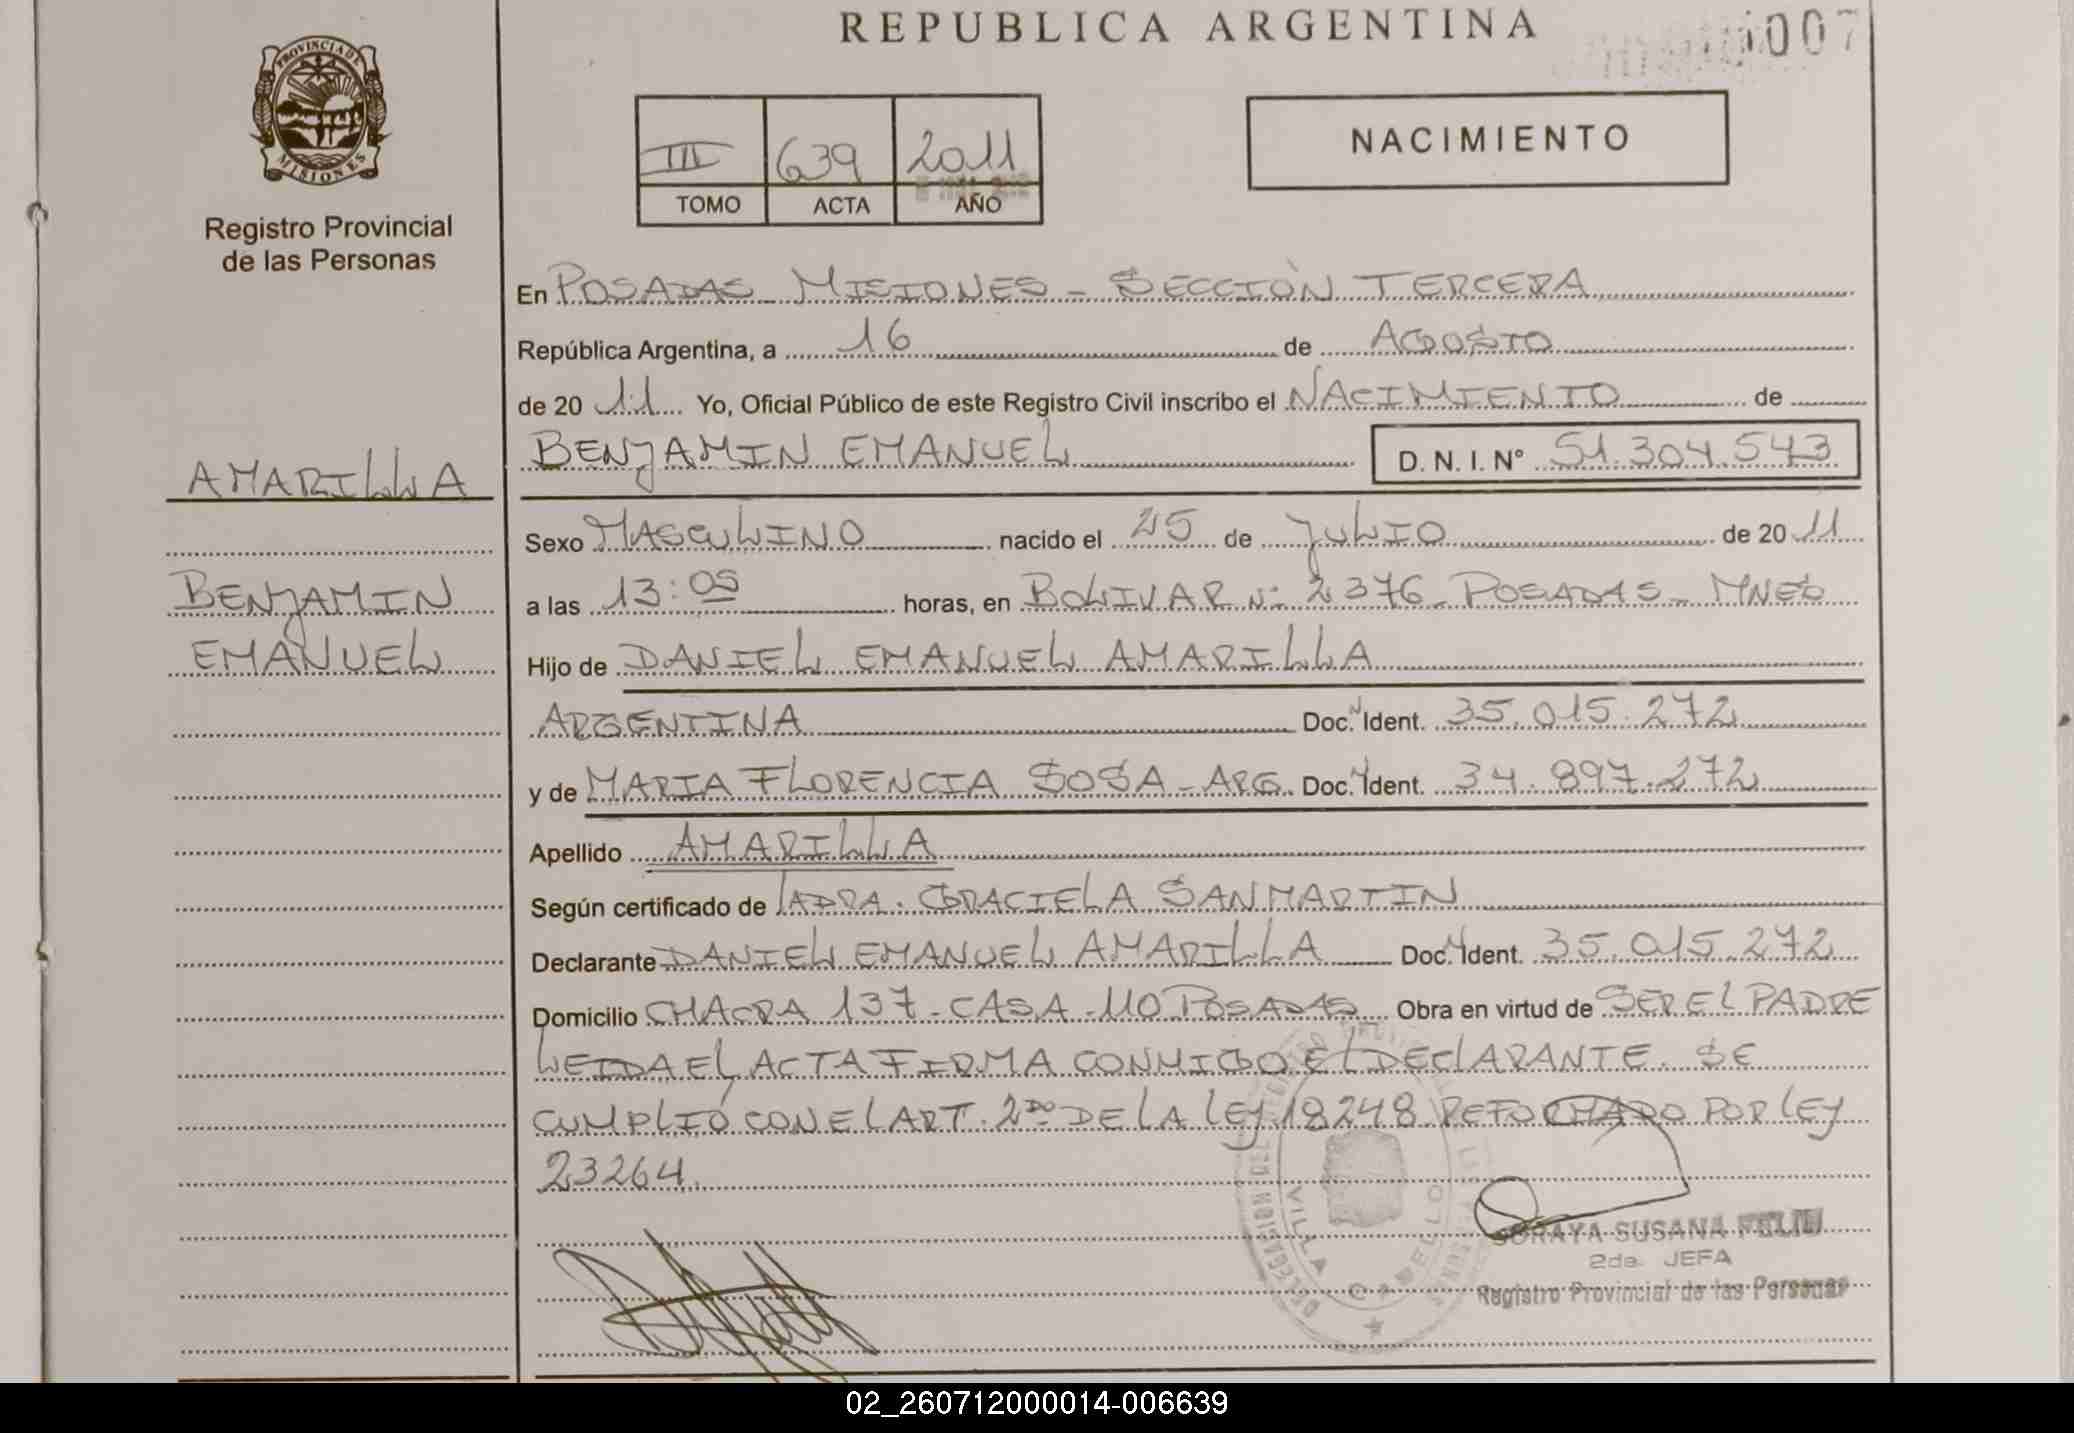 REPUBLICA ARGENTINA
007
PROVINCIA DE
MISIONES
Registro Provincial
de las Personas
III 639 2011
TOMO ACTA AÑO
NACIMIENTO
En POSADAS MISIONES - SECCIÓN TERCERA
República Argentina, a 16 de AGOSTO
de 20 11 Yo, Oficial Público de este Registro Civil inscribo el NACIMIENTO de
BENJAMIN EMANUEL D. N. I. Nº 51.304.543
AMARILLA
Sexo MASCULINO nacido el 25 de JULIO de 20 11
BENJAMIN
a las 13:05 horas, en BOLIVAR Nº 2376 - POSADAS - MNES
EMANUEL
Hijo de DANIEL EMANUEL AMARILLA
ARGENTINA Doc. Ident. 35.015.272
y de MARIA FLORENCIA SOSA - ARG. Doc. Ident. 34.897.272
Apellido AMARILLA
Según certificado de LA DRA. GRACIELA SANMARTIN
Declarante DANIEL EMANUEL AMARILLA Doc. Ident. 35.015.272
Domicilio CHACRA 137 - CASA - 110 POSADAS Obra en virtud de SER EL PADRE
LEIDA EL ACTA FIRMA CONMIGO EL DECLARANTE. SE
CUMPLIÓ CON EL ART. 2DO DE LA LEY 18248 REFORMADO POR LEY
23264.
DELEGACION DEL REGISTRO PROVINCIAL
VILLA CABELLO
SORAYA SUSANA FELIU
2da. JEFA
Registro Provincial de las Personas
02_260712000014-006639